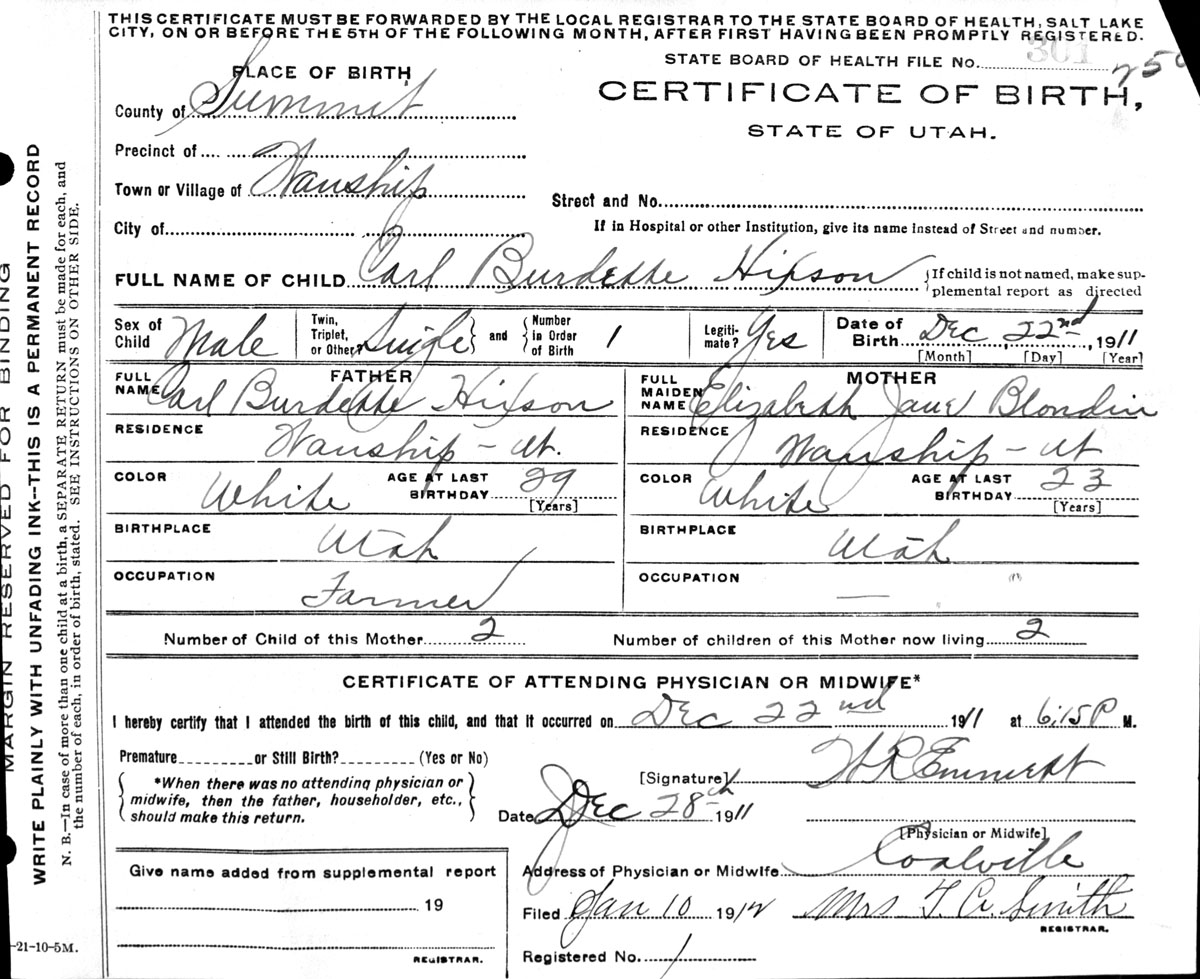 THIS CERTIFICATE MUST BE FORWARDED BY THE LOCAL REGISTRAR TO THE STATE BOARD OF HEALTH, SALT LAKE
CITY, ON OR BEFORE THE 5TH OF THE FOLLOWING MONTH, AFTER FIRST HAVING BEEN PROMPTLY REGISTERED.
STATE BOARD OF HEALTH FILE No. 301
PLACE OF BIRTH
CERTIFICATE OF BIRTH,
STATE OF UTAH.
County of Summit
Precinct of
Town or Village of Wanship
Street and No.
City of
If in Hospital or other Institution, give its name instead of Street and number.
FULL NAME OF CHILD Carl Burdette Hixson {If child is not named, make sup-
plemental report as directed
Sex of Child Male Twin, Triplet, or Other? Single and Number in Order of Birth 1 Legiti-mate? Yes Date of Birth Dec 22nd, 1911
[Month] [Day] [Year]
FATHER
FULL NAME Carl Burdette Hixson
RESIDENCE Wanship - Ut.
COLOR White AGE AT LAST BIRTHDAY 29 [Years]
BIRTHPLACE Utah
OCCUPATION Farmer
MOTHER
FULL MAIDEN NAME Elizabeth Jane Blondin
RESIDENCE Wanship - Ut
COLOR White AGE AT LAST BIRTHDAY 23 [Years]
BIRTHPLACE Utah
OCCUPATION —
Number of Child of this Mother 2 Number of children of this Mother now living 2
CERTIFICATE OF ATTENDING PHYSICIAN OR MIDWIFE*
I hereby certify that I attended the birth of this child, and that it occurred on Dec 22nd 1911 at 6:15 P M.
Premature or Still Birth? (Yes or No)
*When there was no attending physician or
midwife, then the father, householder, etc.,
should make this return.
[Signature] Emmett
Date Dec 28th 1911
[Physician or Midwife]
Address of Physician or Midwife Coalville
Filed Jan 10 1912 Mrs T. A. Smith
REGISTRAR.
Registered No. 1
Give name added from supplemental report
19
REGISTRAR.
-21-10-5M.
MARGIN RESERVED FOR BINDING
WRITE PLAINLY WITH UNFADING INK--THIS IS A PERMANENT RECORD
N. B.—In case of more than one child at a birth, a SEPARATE RETURN must be made for each, and
the number of each, in order of birth, stated. SEE INSTRUCTIONS ON OTHER SIDE.